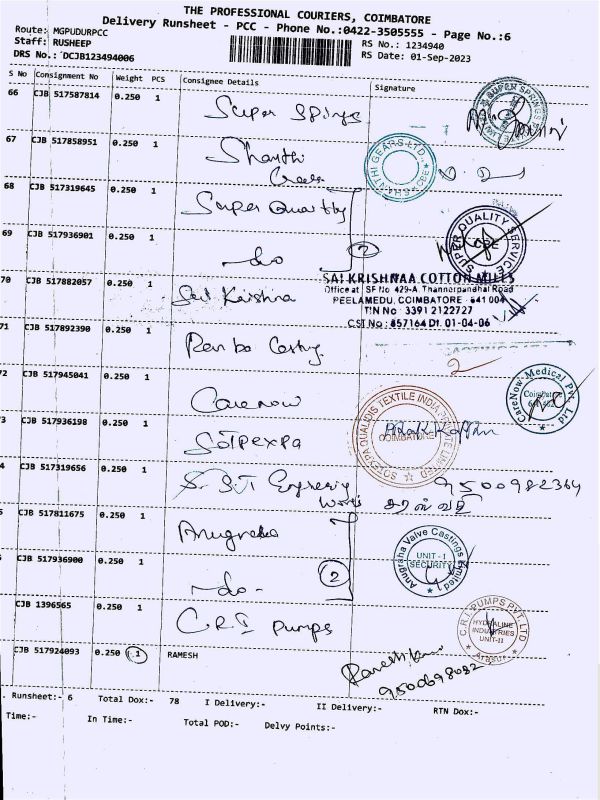 THE PROFESSIONAL COURIERS, COIMBATORE
Delivery Runsheet - PCC - Phone No.:0422-3505555 - Page No.:6
Route: MGPUDURPCC
Staff: RUSHEEP RS No.: 1234940
DRS No.: DCJB123494006 RS Date: 01-Sep-2023
S No Consignment No Weight PCS Consignee Details Signature
66 CJB 517587814 0.250 1 Super Spings
67 CJB 517858951 0.250 1 Shanthi
SHANTHI GEARS LTD.
68 CJB 517319645 0.250 1 Super Quartly
SUPER QUALITY SERVICE
69 CJB 517936901 0.250 1 -do- 2
70 CJB 517882057 1 Sai Krishna
SAI KRISHNAA COTTON MILLS
Office at SF No 429-A Thannerpandhal Road
PEELAMEDU, COIMBATORE - 641 004
TIN No : 33912122727
CST No : 857164 Dt. 01-04-06
71 CJB 517892390 0.250 1
72 CJB 517945041 0.250 1 Carenow
CareNow Medical Pvt Ltd
Coimbatore
73 CJB 517936198 0.250 1 Solpexpa
TEXTILE INDIA PRIVATE LIMITED
COIMBATORE
74 CJB 517319656 0.250 1 S.S.T Engineering Works 9500982364
75 CJB 517811675 0.250 1 Anugraha
Anugraha Valve Castings Limited
UNIT - I
SECURITY
CJB 517936900 0.250 1 -do- 2
CJB 1396565 0.250 1 C.R.I Pumps
C.R.I. PUMPS PVT. LTD
HYDRALINE
INDUSTRIES
UNIT-II
Arasur
CJB 517924093 0.250 1 RAMESH
9500698082
. Runsheet:- 6 Total Dox:- 78 I Delivery:- II Delivery:- RTN Dox:-
Time:- In Time:- Total POD:- Delvy Points:-